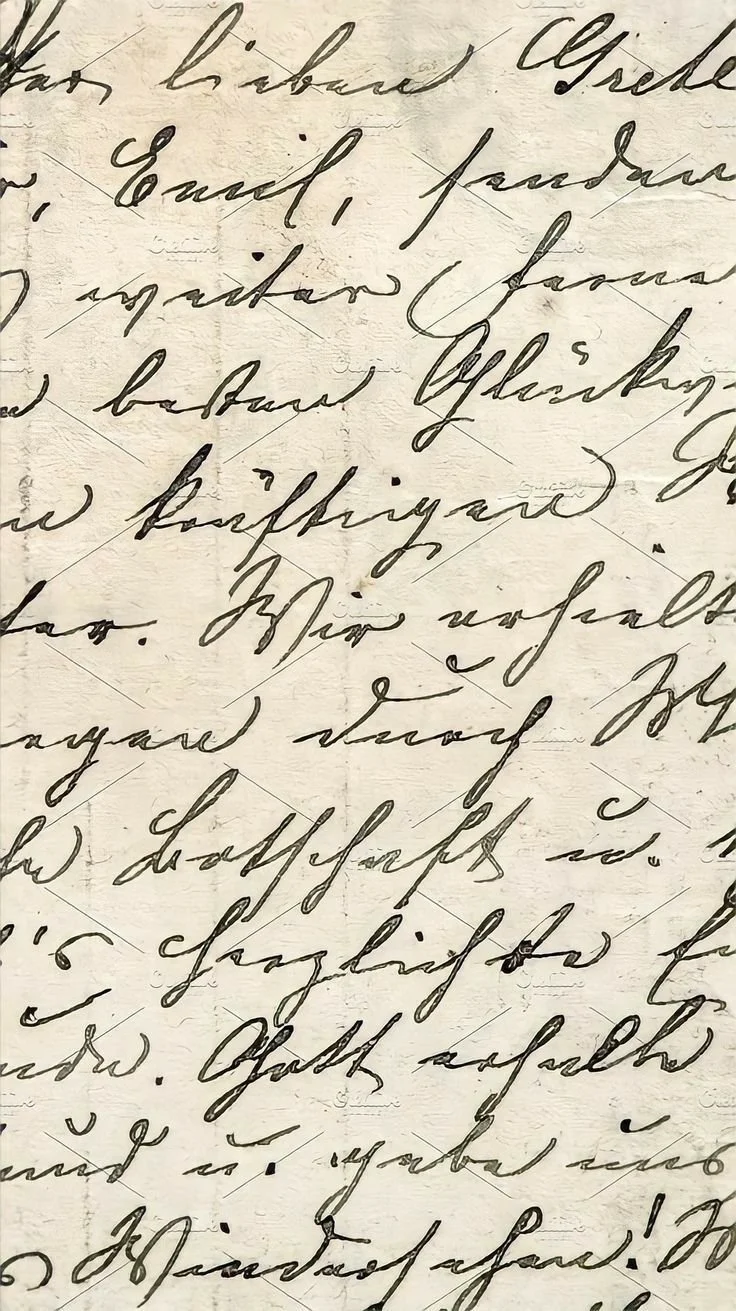 lieben Grete
Emil, senden
weiter Ferne
besten Glückw
kräftigen
ter. Wir erhielt
egen durch
Botschaft u.
's herzlichste
Gott erhalte
und u. gebe uns
Wiedersehen!